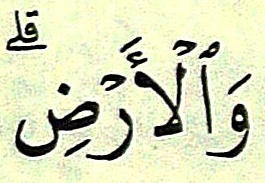 وَٱلْأَرْضِ ۗ